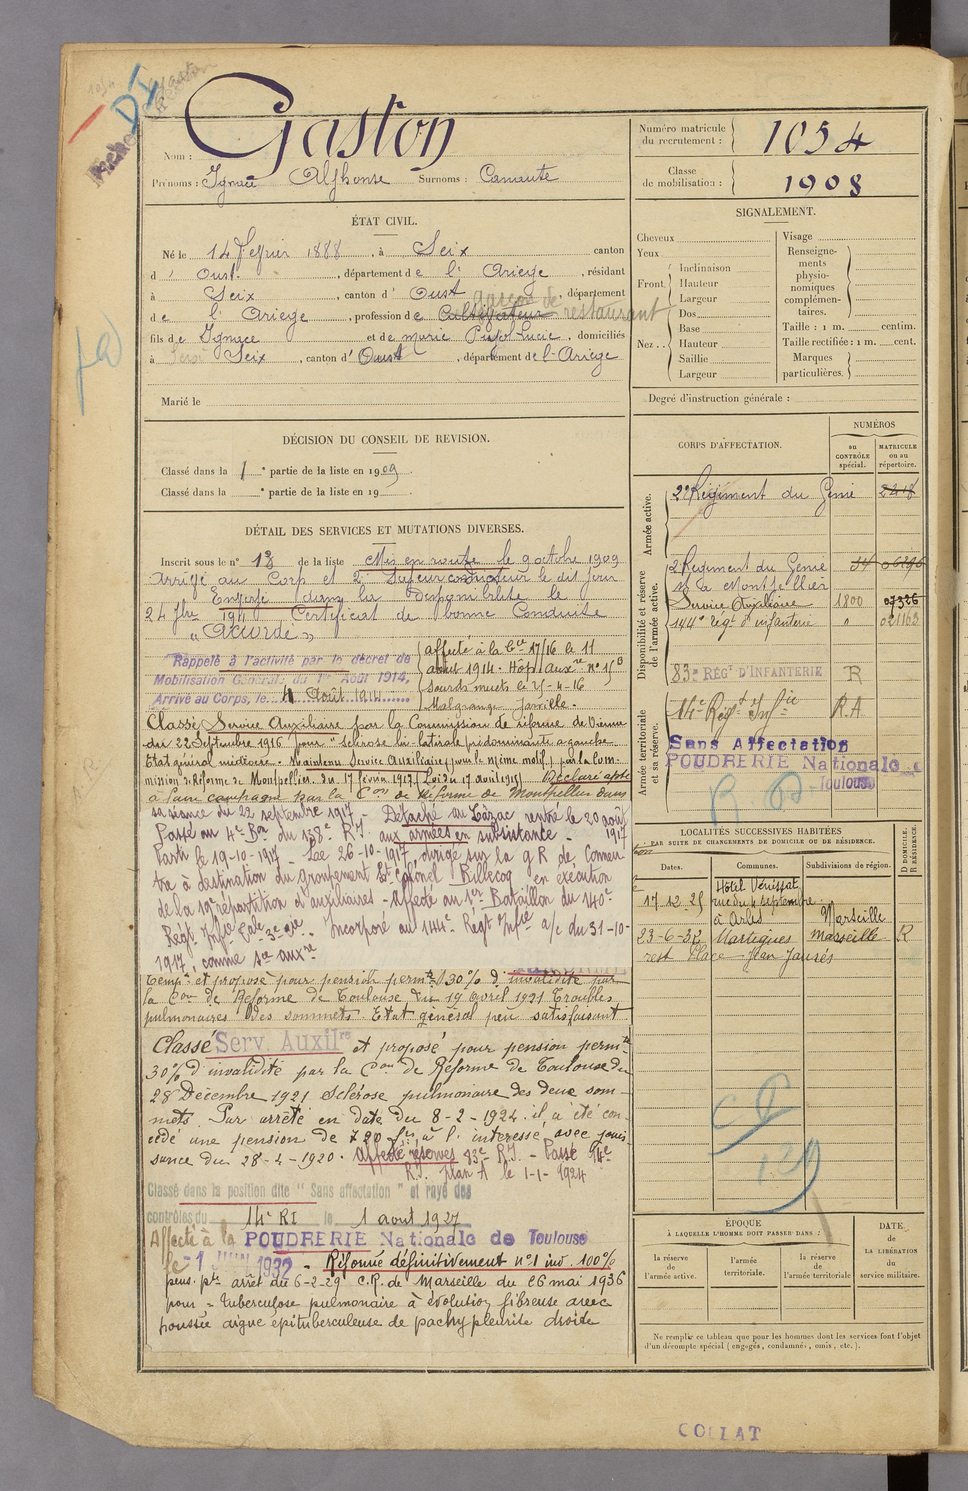 Gaston
Nom :
Prénoms : Ignace Alphonse Surnoms : Camaute
Numéro matricule du recrutement : 1054
Classe de mobilisation : 1908
ÉTAT CIVIL.
Né le 14 février 1888, à Seix canton
d' Oust, département de l'Ariège, résidant
à Seix, canton d' Oust, département
de l'Ariège, profession de Cultivateur garçon de restaurant
fils de Ignace et de marie Pujol Lucie, domiciliés
à Seix, canton d' Oust, département de l'Ariège
Marié le
DÉCISION DU CONSEIL DE REVISION.
Classé dans la 1e partie de la liste en 1909.
Classé dans la e partie de la liste en 19 .
DÉTAIL DES SERVICES ET MUTATIONS DIVERSES.
Inscrit sous le n° 18 de la liste Mis en route le 9 octobre 1909
Arrivé au Corps et 2e Sapeur conducteur le dit jour
Envoyé dans la Disponibilité le
24 7bre 1911 Certificat de bonne Conduite
" Accordé "
Rappelé à l'activité par le décret de
Mobilisation Générale du 1er Août 1914,
Arrivé au Corps, le 4 Août 1914
affecté à la Cie 17/16 le 11
août 1914. Hôp. Auxre n° 15 B
Sourds muets le 25-4-16
Malgrange Jarville.
Classé Service Auxiliaire par la Commission de réforme de Vienne
du 22 Septembre 1916 pour "sclérose bi-latérale prédominante à gauche
Etat général médiocre. Maintenu Service Auxiliaire (pour le même motif) par la Com-
mission de Réforme de Montpellier du 17 février 1917 (Loi du 17 août 1915) Déclaré apte
à faire campagne par la Con de Réforme de Montpellier dans
sa séance du 22 septembre 1917 - Détaché au Larzac rentré le 30 août 1917
Passé au 4e Bon du 138e R.I. aux armées en subsistance.
Parti le 19-10-1917 - Le 26-10-1917, dirigé sur la g R de Connan-
tra à destination du groupement Lt Colonel Billecoq en exécution
de la 19e répartition d'auxiliaires - Affecté au 1er Bataillon du 140e
Régt Infie Cole 3e Cie. Incorporé au 144e Régt Infie a/c du 31-10-
1917, comme sce auxre
Tempre et proposé pour pension permte 30% d'invalidité par
la Con de Réforme de Toulouse du 19 avril 1921 Troubles
pulmonaires des sommets. Etat général peu satisfaisant
Classé Serv. Auxilre et proposé pour pension permte
30% d'invalidité par la Con de Réforme de Toulouse du
28 Décembre 1921 Sclérose pulmonaire des deux som-
mets. Par arrêté en date du 8-2-1924 il a été con-
cédé une pension de 720 frs à l'intéressé avec jouis-
sance du 28-4-1920. Affecté réserves 83e R.I. - Passé 14e
R.I. plan A le 1-1-1924
Classé dans la position dite "Sans affectation" et rayé des
contrôles du 14e RI le 1 aout 1927
Affecté à la POUDRERIE Nationale de Toulouse
le -1 JUIN 1932 - Réformé définitivement n°1 inv. 100%
pens. pte arrêt du 6-2-29 C.R. de Marseille du 26 mai 1936
pour = tuberculose pulmonaire à évolution fibreuse avec
poussée aigue épituberculeuse de pachypleurite droite
SIGNALEMENT.
Cheveux
Yeux
Front. Inclinaison
Hauteur
Largeur
Nez . . Dos
Base
Hauteur
Saillie
Largeur
Visage
Renseignements physionomiques complémentaires.
Taille : 1 m. centim.
Taille rectifiée : 1 m. cent.
Marques particulières.
Degré d'instruction générale :
CORPS D'AFFECTATION.
NUMÉROS
au CONTRÔLE spécial.
MATRICULE ou au répertoire.
Armée active.
2e Régiment du Génie 2218
Disponibilité et réserve de l'armée active.
2 Régiment du Génie
à Montpellier
Service Auxiliaire 1800 07326
144e Régt d'infanterie " 021163
83e RÉGT D'INFANTERIE R
Armée territoriale et sa réserve.
14e Régt Infie R.A
Sans Affectation
POUDRERIE Nationale de
Toulouse
LOCALITÉS SUCCESSIVES HABITÉES
PAR SUITE DE CHANGEMENTS DE DOMICILE OU DE RÉSIDENCE.
D DOMICILE. R RÉSIDENCE.
Dates. Communes. Subdivisions de région.
17-12 25 Hôtel Vérissat
rue du 4 septembre
à Arles Marseille
23-6-32 Martigues Marseille R
rest Place Jean Jaurès
ÉPOQUE
À LAQUELLE L'HOMME DOIT PASSER DANS :
la réserve de l'armée active.
l'armée territoriale.
la réserve de l'armée territoriale
DATE de LA LIBÉRATION du service militaire.
Ne remplir ce tableau que pour les hommes dont les services font l'objet
d'un décompte spécial (engagés, condamnés, omis, etc.).
COLLAT